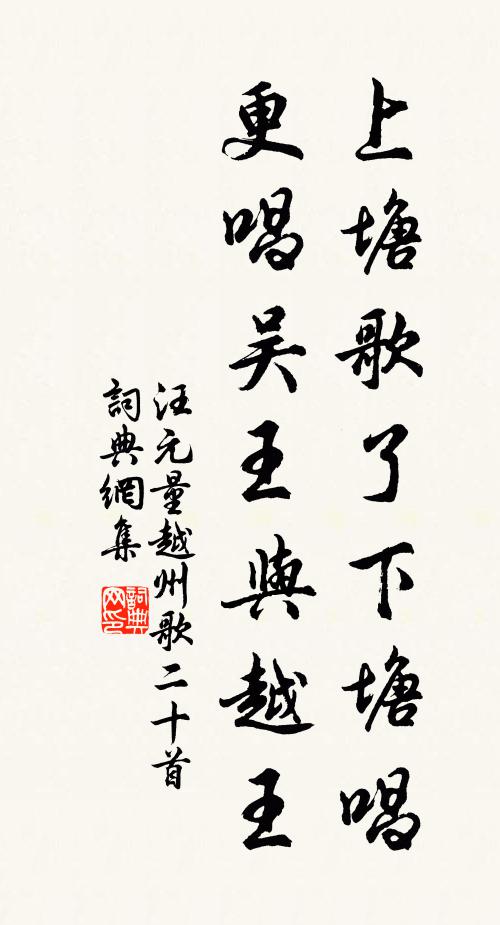 上塘歌了下塘唱
更唱吴王與越王
汪元量越州歌二十首
詞典網集
詞典网印